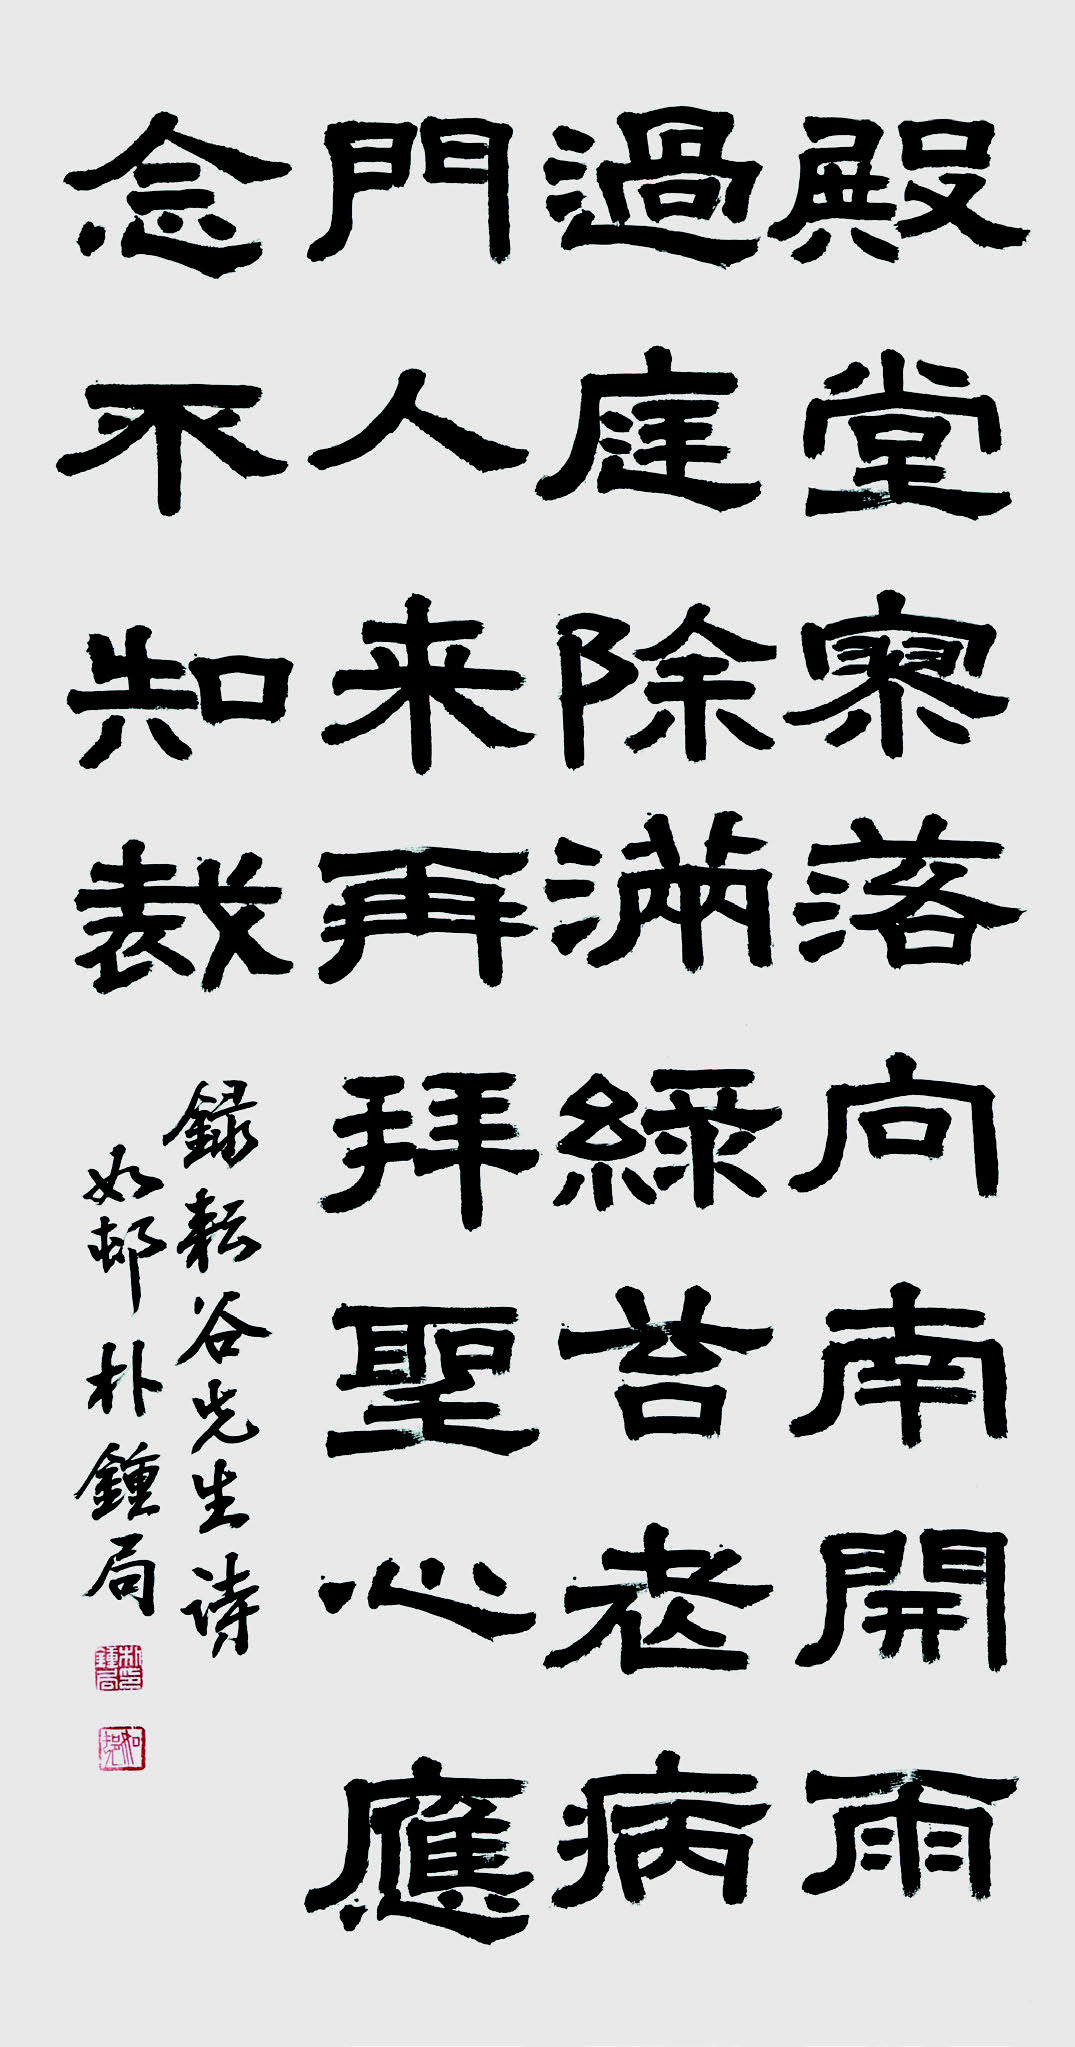 殿堂寥落向南開雨
過庭除滿綠苔老病
門人来再拜聖心應
念不知裁
録耘谷先生詩
如邨 朴鍾局